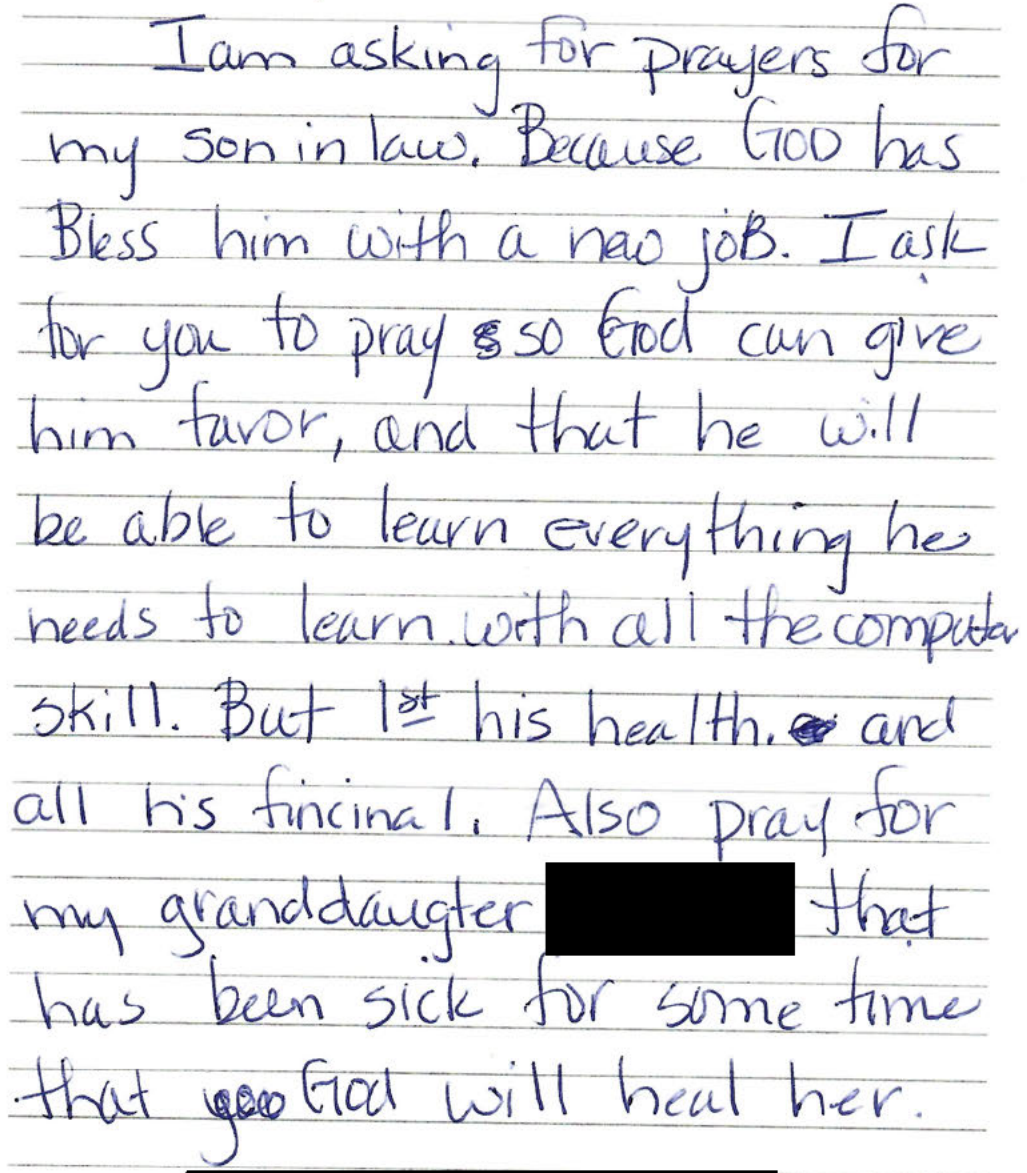 I am asking for prayers for
my son in law. Because GOD has
Bless him with a new joB. I ask
for you to pray so God can give
him favor, and that he will
be able to learn everything he
needs to learn. with all the computer
skill. But 1st his health. and
all his fincinal. Also pray for
my granddaugter that
has been sick for some time
that God will heal her.